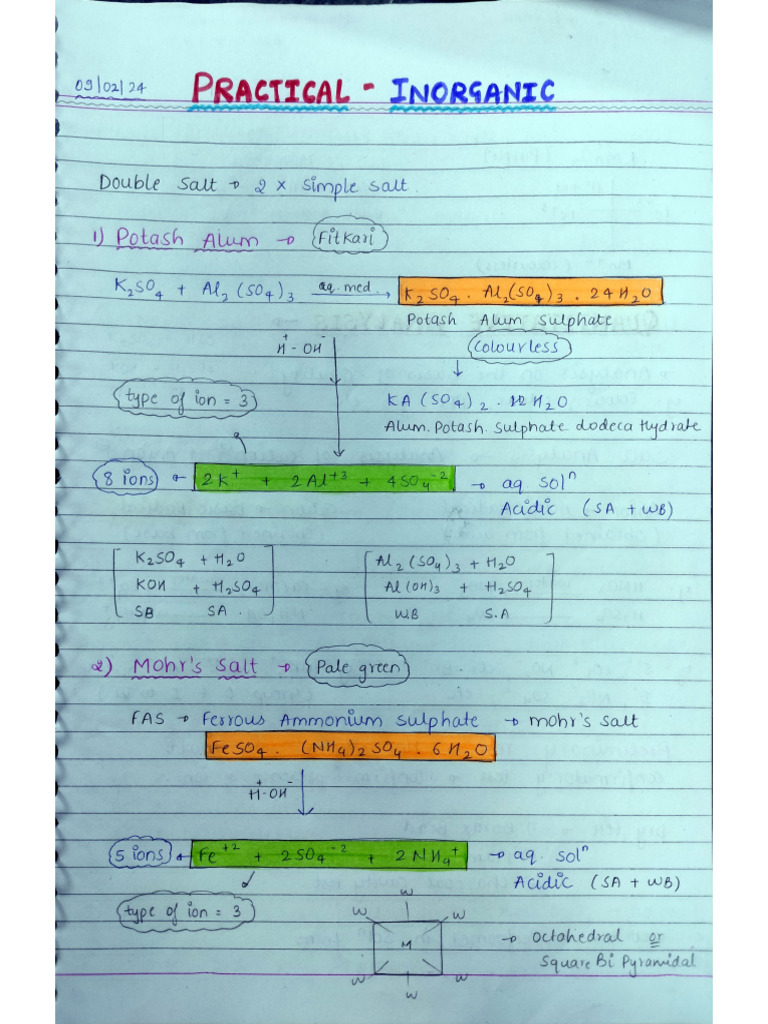 09/02/24 PRACTICAL - INORGANIC
Double Salt → 2 × Simple Salt.
1) Potash Alum → Fitkari
K2SO4 + Al2(SO4)3 aq. med. → K2SO4 . Al2(SO4)3 . 24H2O
Potash Alum Sulphate
H+ - OH- Colourless
↓
type of ion = 3 KA(SO4)2 . 12H2O
Alum. Potash. Sulphate dodeca Hydrate
8 ions ← 2K+ + 2Al+3 + 4SO4-2 → aq soln
Acidic (SA + WB)
K2SO4 + H2O Al2(SO4)3 + H2O
KOH + H2SO4 Al(OH)3 + H2SO4
SB SA. WB S.A
2) Mohr's Salt → Pale green
FAS → Ferrous Ammonium Sulphate → mohr's salt
FeSO4 . (NH4)2SO4 . 6H2O
H+-OH-
5 ions ← Fe+2 + 2SO4-2 + 2NH4+ → aq. soln
Acidic (SA + WB)
type of ion = 3
W
W W
M → octohedral or
Square Bi Pyramidal
W W
W